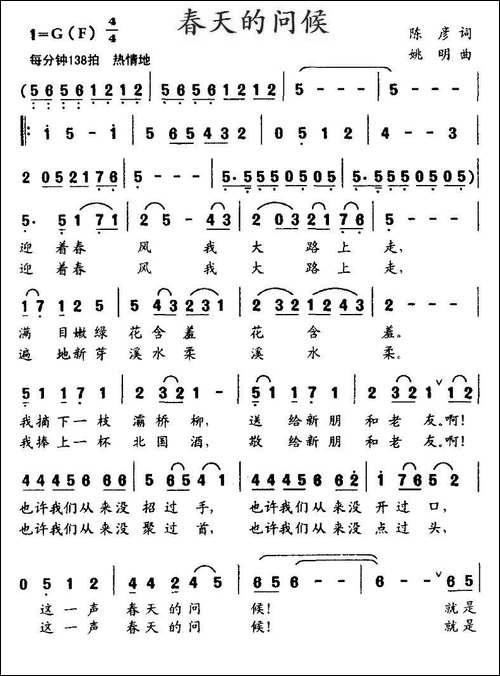 春天的问候
1=G(F) 4/4
陈彦词
每分钟138拍 热情地
姚明曲
(56561212 | 56561212 | 5 - - - | 5 - - -
1 5 - 1 | 5 65432 | 0 5 1 2 | 4 - - 3
2 052176 | 5 - - - | 5·55505050 | 5·55505050)
5· 5171 | 25 - 43 | 2032176 | 5 - - -
迎 着春 风 我 大 路上 走,
迎 着春 风 我 大 路上 走,
17 125 | 5 43231 | 2 321243 | 2 - - -
满 目嫩绿 花含羞 花 含 羞。
遍 地新芽 溪水柔 溪 水 柔。
51 17 1 | 2 321 - | 51 17 1 | 2 321 21
我摘下一枝 灞桥柳, 送 给新朋 和老友,啊!
我捧上一杯 北国酒, 散 给新朋 和老友,啊!
444566 66 | 5 6541 | 444566 62 | 1 7652
也许我们从来没 招过手, 也许我们从来没 开过口,
也许我们从来没 聚过首, 也许我们从来没 点过头,
0 5 1 2 | 44245 | 656 - - | 6 - - 65
这一声 春天的问 候! 就是
这一声 春天的问 候! 就是